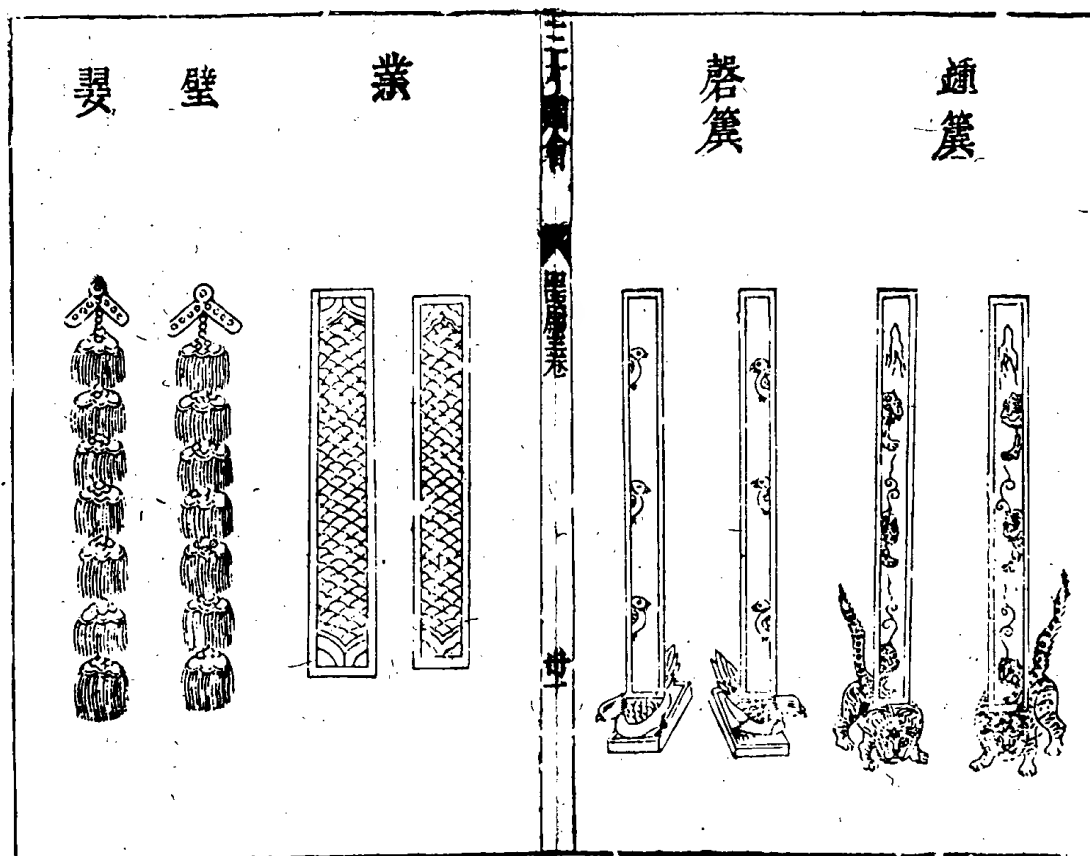 鍾簴
磬簴
三才圖會
器用三卷
業
璧
翣